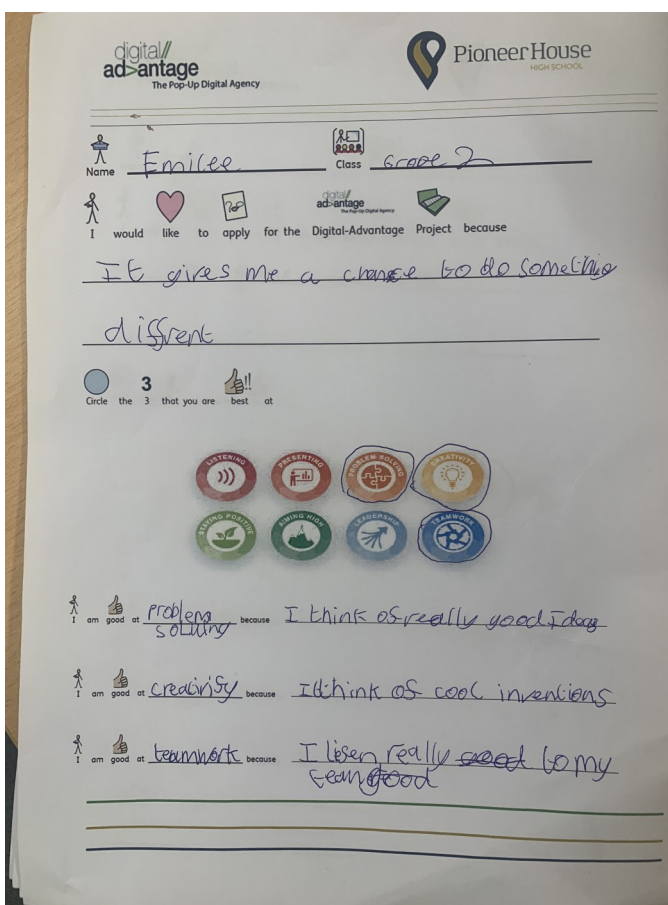 digital//
ad>antage
The Pop-Up Digital Agency
Pioneer House
HIGH SCHOOL
Name Emilee Class Grade 2
digital//
ad>antage
The Pop-Up Digital Agency
I would like to apply for the Digital-Advantage Project because
It gives me a chance to do somethig
diffrent
3 !!
Circle the 3 that you are best at
LISTENING PRESENTING PROBLEM SOLVING CREATIVITY
STAYING POSITIVE AIMING HIGH LEADERSHIP TEAMWORK
I am good at problem because I think of really good Ideas
solving
I am good at creativity because I think of cool inventions
I am good at teamwork because I lisen really good to my
team good